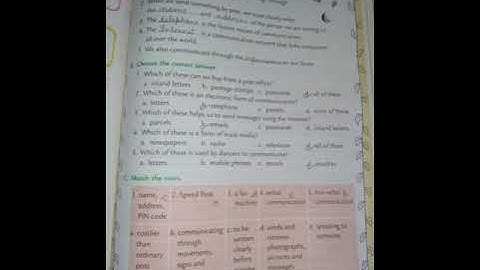 2. When we send something by post, we must clearly write
the student and address of the person we are sending to
3. The telephone is the fastest means of communication.
4. The Internet is a network that links computers
all over the world.
5. We also communicate through the
B. Choose the correct answer.
1. Which of these can we buy from a post office?
a. inland letters b. postage stamps c. postcards d. all of these
2. Which of these is an electronic form of communication?
a. letters b. telephone c. parcels d. none of these
3. Which of these helps us to send messages using the Internet?
a. parcels b. emails c. postcards d. inland letters
4. Which of these is a form of mass media?
a. newspapers b. radio c. television d. all of these
5. Which of these is used by dancers to communicate?
a. letters b. mobile phones c. words d.
C. Match the
1. name, address, PIN code 2. Speed Post 3. a fax machine 4. verbal communication 5. non-verbal communication
a. costlier than ordinary post b. communicating through movements, signs and c. to be written clearly before d. sends and receives photographs, pictures and e. speaking to someone